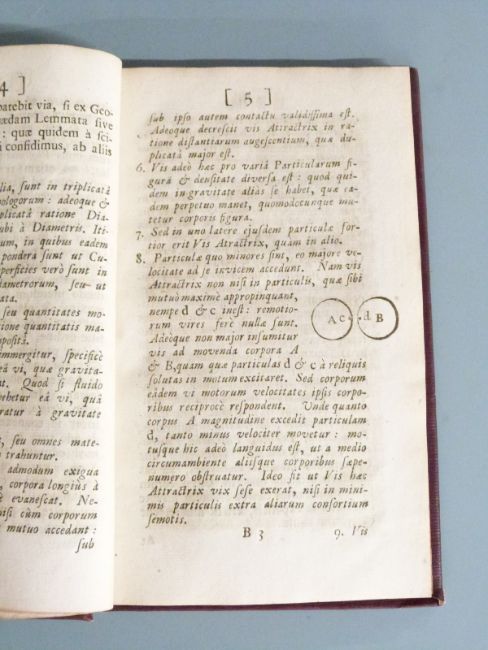 4 ]
patebit via, si ex Geo-
Lemmata sive
: quæ quidem à sci-
confidimus, ab aliis
sunt in triplicatâ
homologorum : adeoque &
ratione Dia-
à Diametris. Iti-
in quibus eadem
sunt ut Cu-
verò sunt in
seu- ut
seu quantitates mo-
quantitatis ma-
immergitur, specificè
vi, quæ gravita-
Quod si fluido
eâ vi, quâ
à gravitate
seu omnes mate-
trahuntur.
admodum exigua
corpora longiùs à
evanescat. Ne-
nisi cùm corporum
mutuo accedant :
sub
[ 5 ]
sub ipso autem contactu validissima est.
Adeoque decrescit vis Attractrix in ra-
tione distantiarum augescentium, quæ du-
plicatâ major est.
6. Vis adeò hæc pro variâ Particularum fi-
gurâ & densitate diversa est : quod qui-
dem in gravitate alias se habet, quæ ea-
dem perpetuo manet, quomodocunque mu-
tetur corporis figura.
7. Sed in uno latere ejusdem particulæ for-
tior erit Vis Atractrix, quam in alio.
8. Particulæ quo minores sint, eo majore ve-
locitate ad se invicem accedunt. Nam vis
Attractrix non nisi in particulis, quæ sibi
mutuò maximè appropinquant,
nempe d & c inest: remotio-
rum vires ferè nullæ sunt.
Adeòque non major insumitur
vis ad movenda corpora A
& B, quam quæ particulas d & c à reliquis
solutas in motum excitaret. Sed corporum
eâdem vi motorum velocitates ipsis corpo-
ribus reciprocè respondent. Unde quanto
corpus A magnitudine excedit particulam
d, tanto minus velociter movetur : mo-
tusque hic adeò languidus est, ut a medio
circumambiente aliisque corporibus sæpe-
numero obstruatur. Ideo fit ut Vis hæc
Attractrix vix sese exerat, nisi in mini-
mis particulis extra aliarum consortium
semotis.
A c . d B
B 3 9. Vis